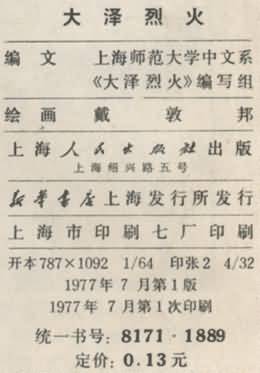 大泽烈火
编文 上海师范大学中文系
《大泽烈火》编写组
绘画 戴敦邦
上海人民出版社出版
上海绍兴路五号
新华书店上海发行所发行
上海市印刷七厂印刷
开本787×1092 1/64 印张2 4/32
1977年7月第1版
1977年7月第1次印刷
统一书号:8171·1889
定价:0.13元